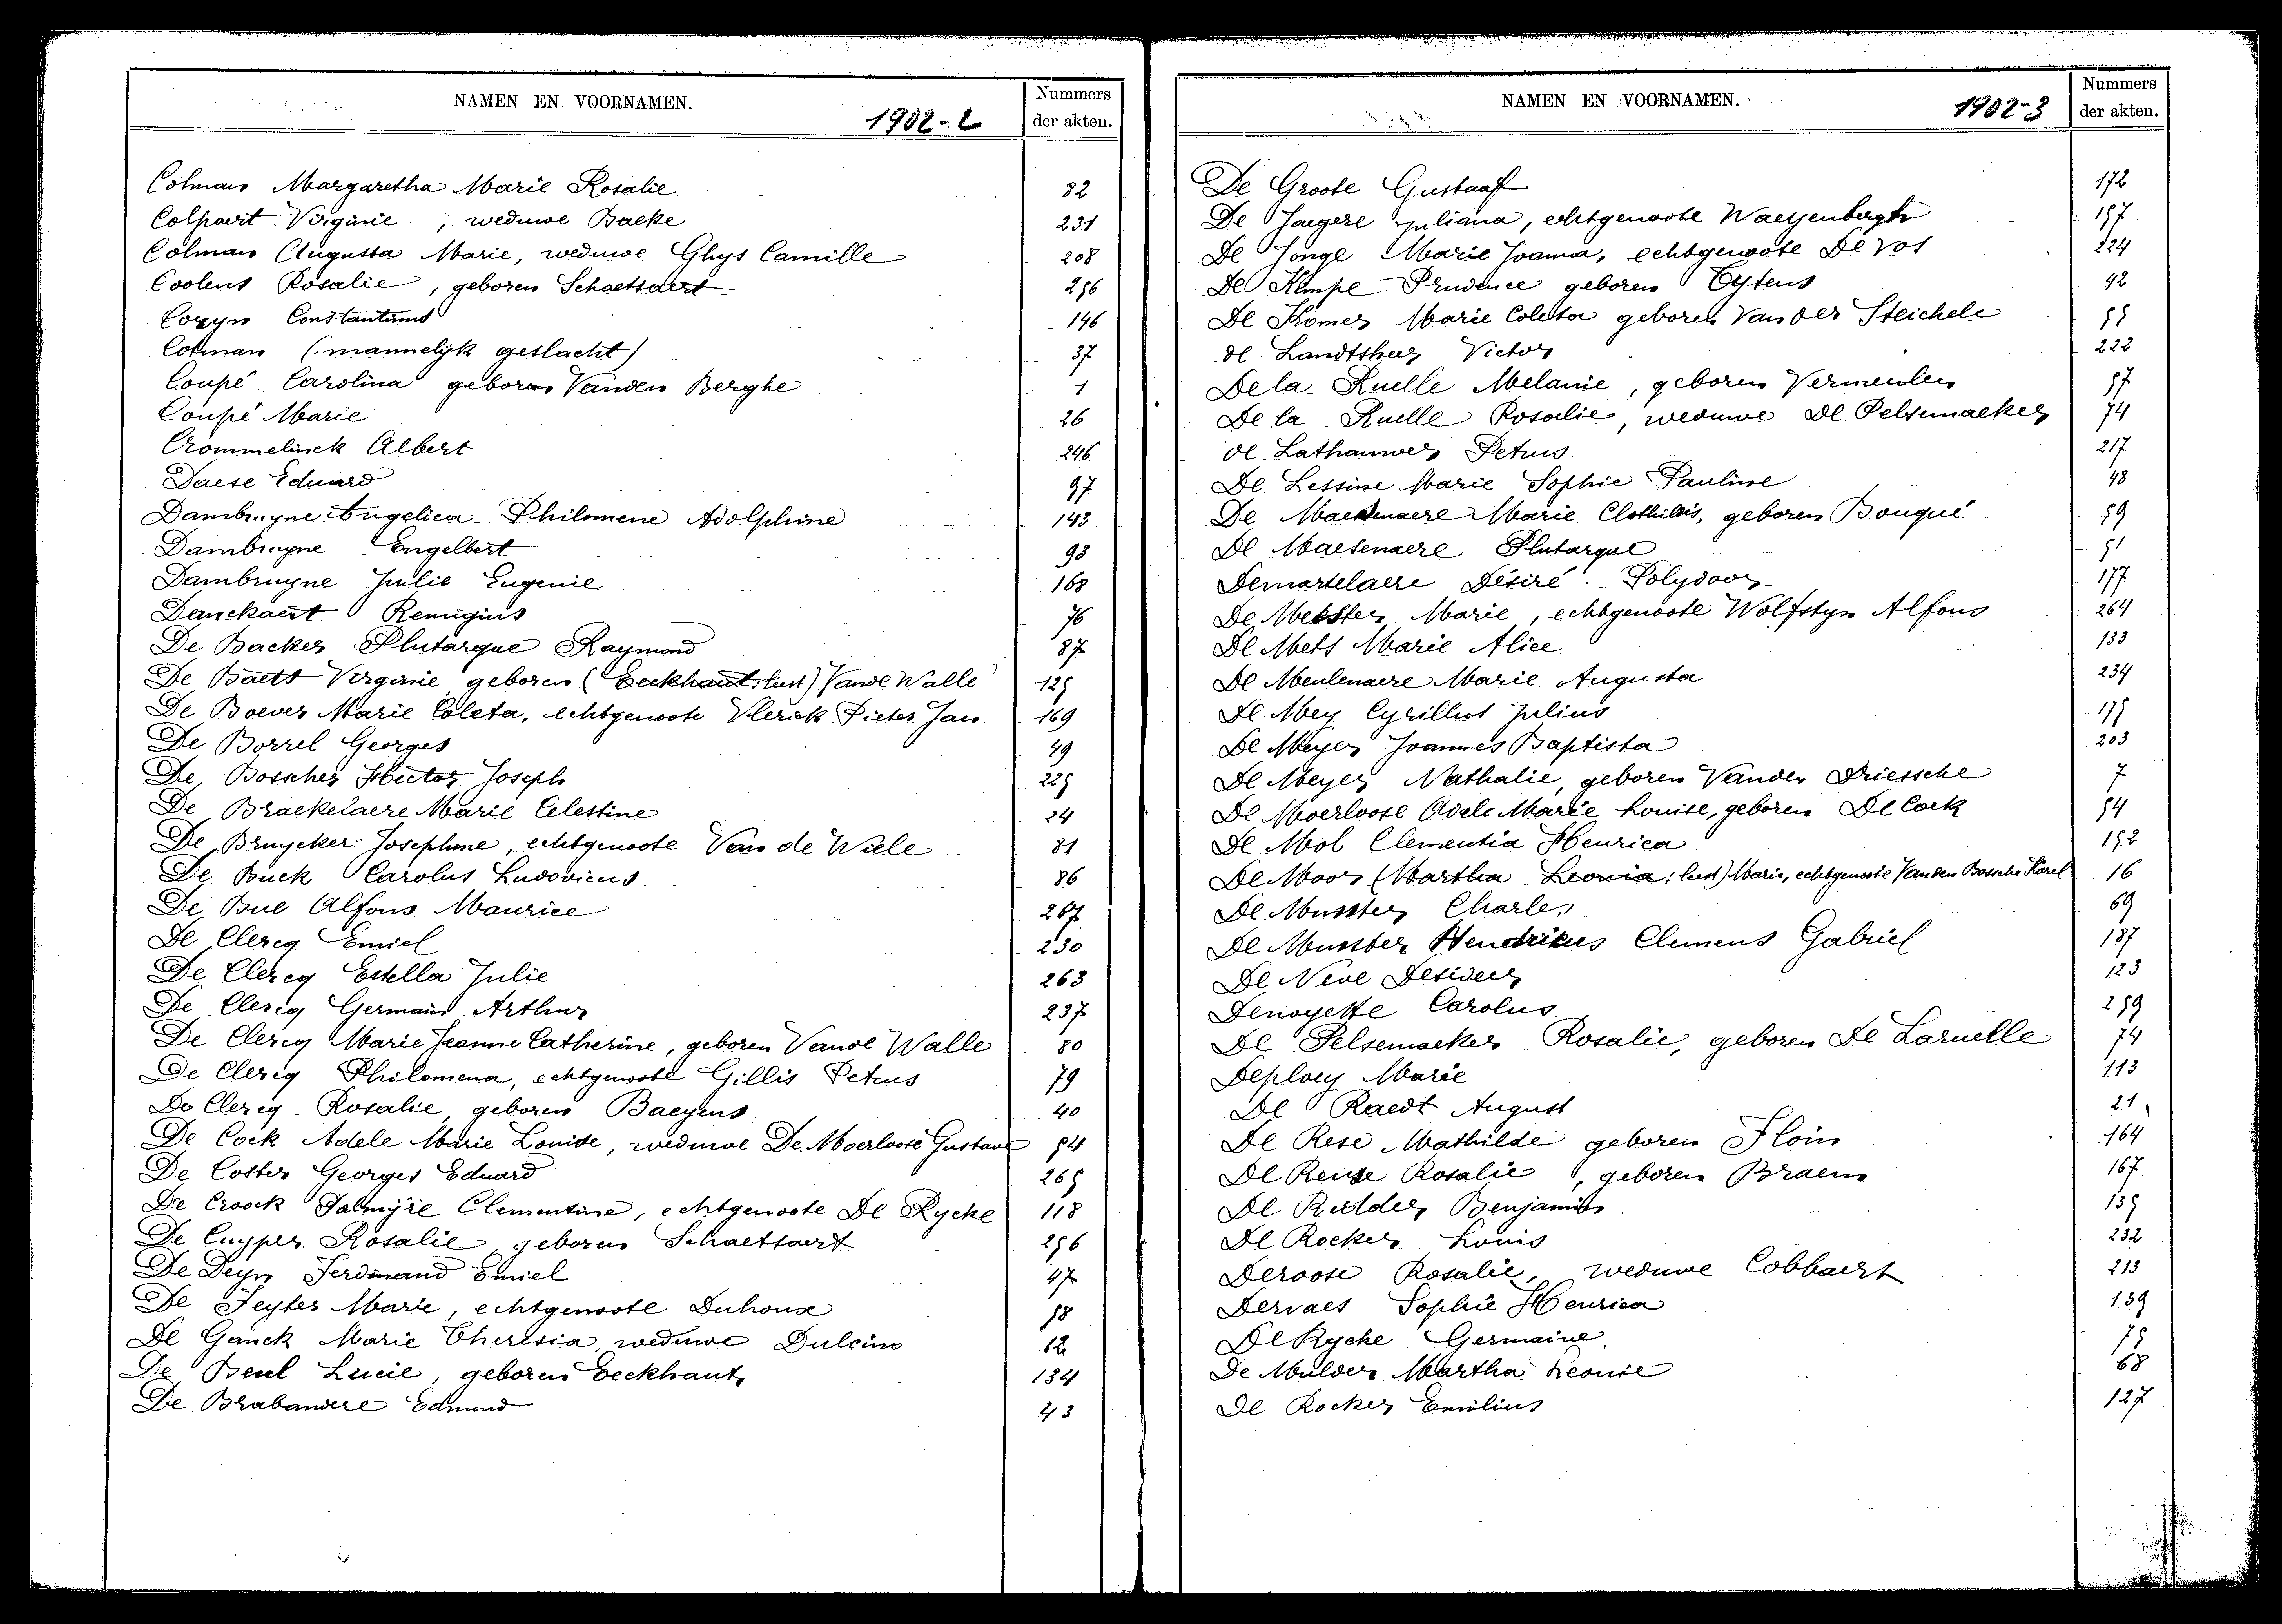 NAMEN EN VOORNAMEN.
1902-2
Nummers
der akten.
Colman Margaretha Marie Rosalie 82
Colpaert Virginie, weduwe Backe 231
Colman Augusta Marie, weduwe Ghys Camille 208
Coolens Rosalie, geboren Schaetsaert 256
Cozyn Constantinus 146
Cotman (mannelijk geslacht) 37
Coupé Carolina geboren Vanden Berghe 1
Coupé Marie 26
Crommelinck Albert 246
Daese Eduard 97
Dambruyne Angelica Philomene Adolphine 143
Dambruyne Engelbert 93
Dambruyne Julie Eugenie 168
Danckaert Remigius 76
De Backer Plutarque Raymond 87
De Baets Virginie geboren (Eeckhaut: leest) Vande Walle 125
De Boever Marie Coleta, echtgenoote Vlerick Pieter Jan 169
De Borrel Georges 49
De Bosscher Hector Joseph 225
De Braekelaere Marie Celestine 24
De Bruycker Josephine, echtgenoote Van de Wiele 81
De Buck Carolus Ludovicus 86
De Bue Alfons Maurice 267
De Clercq Emiel 230
De Clercq Estella Julie 263
De Clercq Germain Arthur 237
De Clercq Marie Jeanne Catherine, geboren Vande Walle 80
De Clercq Philomena, echtgenoote Gillis Petrus 79
De Clercq Rosalie geboren Baeyens 40
De Cock Adele Marie Louise, weduwe De Moerloose Gustave 54
De Coster Georges Eduard 265
De Croock Palmyre Clementine, echtgenoote De Rycke 118
De Cuyper Rosalie geboren Schaetsaert 256
De Deyn Ferdinand Emiel 47
De Feyter Marie, echtgenoote Duhoux 58
De Ganck Marie Theresia, weduwe Dulcino 12
De Beul Lucie, geboren Eeckhaut 134
De Brabandere Edmond 43
NAMEN EN VOORNAMEN.
1902-3
Nummers
der akten.
De Groote Gustaaf 172
De Jaegere Juliana, echtgenoote Waeyenbergh 157
De Jonge Marie Joanna, echtgenoote De Vos 224
De Kimpe Prudence geboren Eytens 42
De Komer Marie Coleta geboren Van der Steichele 55
de Landtsheer Victor 222
De la Ruelle Melanie, geboren Vermeulen 57
De la Ruelle Rosalie, weduwe De Pelsemaeker 74
de Lathauwer Petrus 217
De Lessine Marie Sophie Pauline 48
De Maertenaere Marie Clothildis, geboren Bouqué 59
De Maesenaere Plutarque 51
Demartelaere Désiré Polydoor 177
De Meester Marie, echtgenoote Wolfstyn Alfons 264
De Mets Marie Alice 133
De Meulenaere Marie Augusta 234
De Mey Cyrillus Julius 175
De Meyer Joannes Baptista 203
De Meyer Nathalie, geboren Vanden Driessche 7
De Moerloose Adele Marie Louise, geboren De Cock 54
De Mol Clementia Henrica 152
De Moor (Martha Leonia: leest) Marie, echtgenoote Vanden Bossche Karel 16
De Munster Charles 69
De Munster Hendrikus Clemens Gabriel 187
De Neve Desideer 123
Denoyette Carolus 259
De Pelsemaeker Rosalie, geboren De Laruelle 74
Deploey Marie 113
De Raedt August 21
De Rese Mathilde geboren Floin 164
De Reuse Rosalie, geboren Braem 167
De Ridder Benjamin 135
De Rocker Louis 232
Deroose Rosalie, weduwe Cobbaert 213
Dervaes Sophie Henrica 139
De Rycke Germaine 75
De Mulder Martha Leonie 68
De Rocker Emilius 127